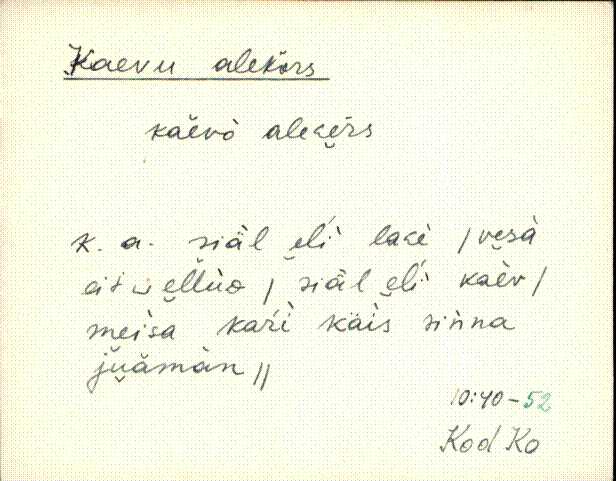 Kaevu alekõrs
kaèvò alekèrs
k. a. siäl eĺì lakè / vesà
eit wèllùo / siäl eĺì kaèv /
meìsa kaŕì käis siǹna
juàmàn //
10:40-52
Kod Ko